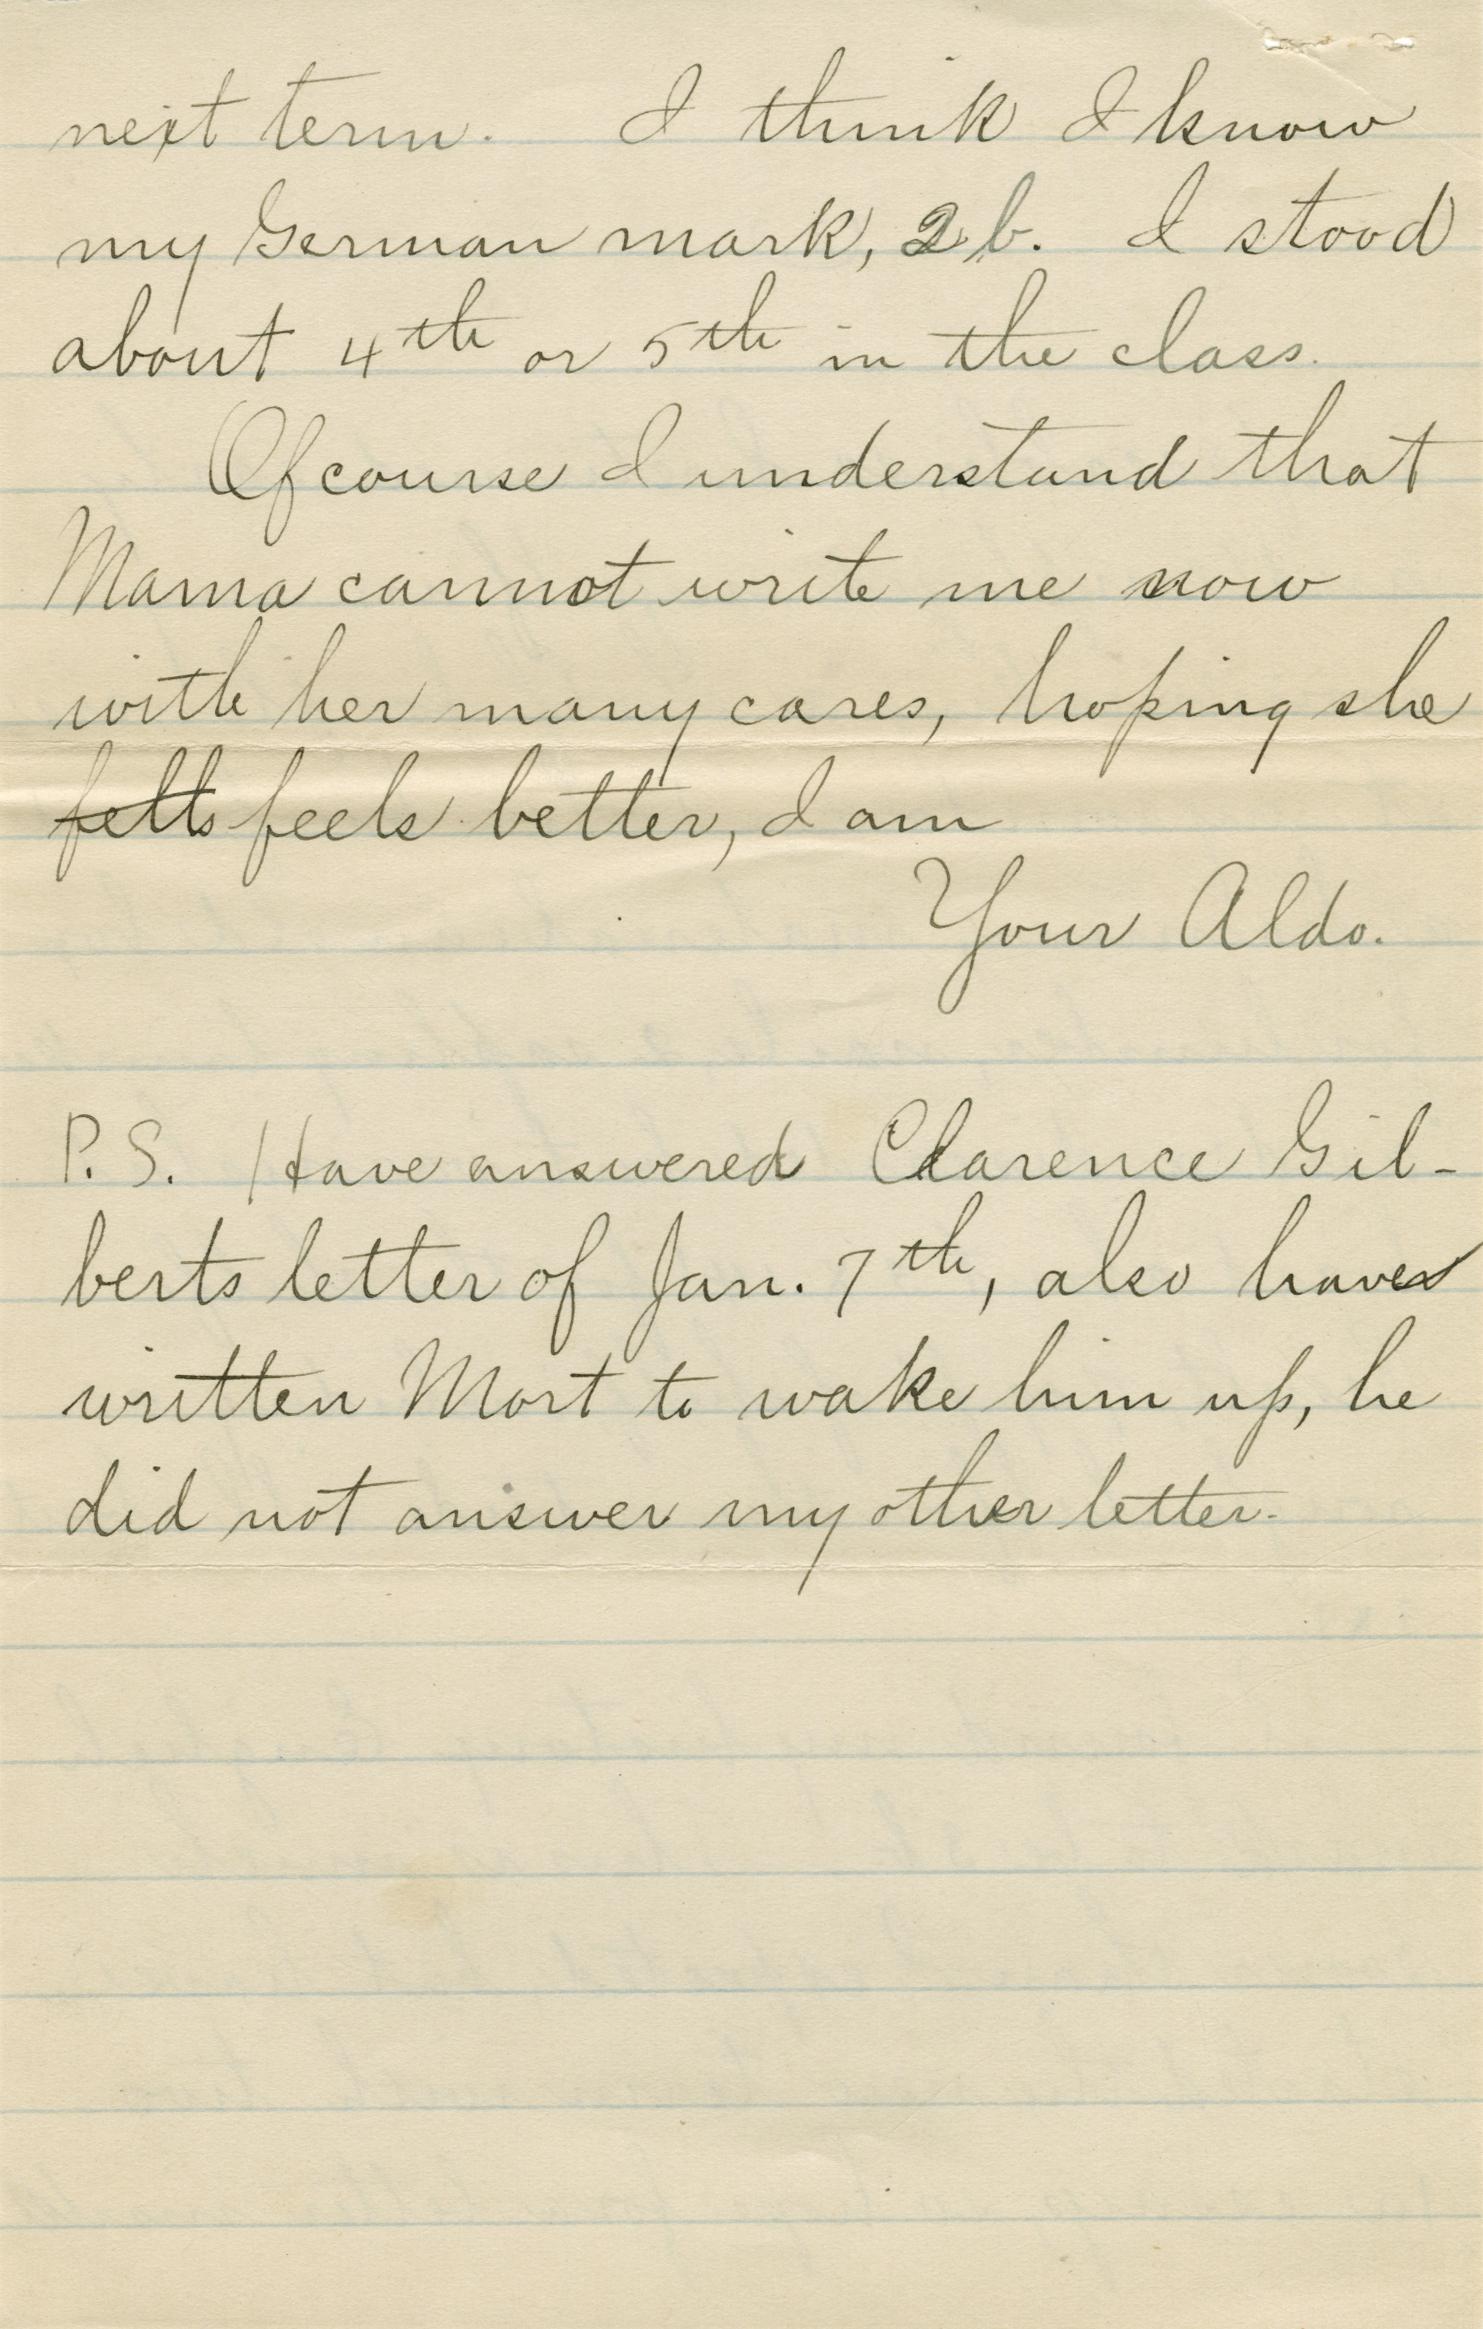 next term. I think I know
my German mark, 2b. I stood
about 4th or 5th in the class.
Of course I understand that
Mama cannot write me now
with her many cares, hoping she
feels better, I am
Your Aldo.
P.S. Have answered Clarence Gil-
berts letter of Jan. 7th, also have
written Mort to wake him up, he
did not answer my other letter.